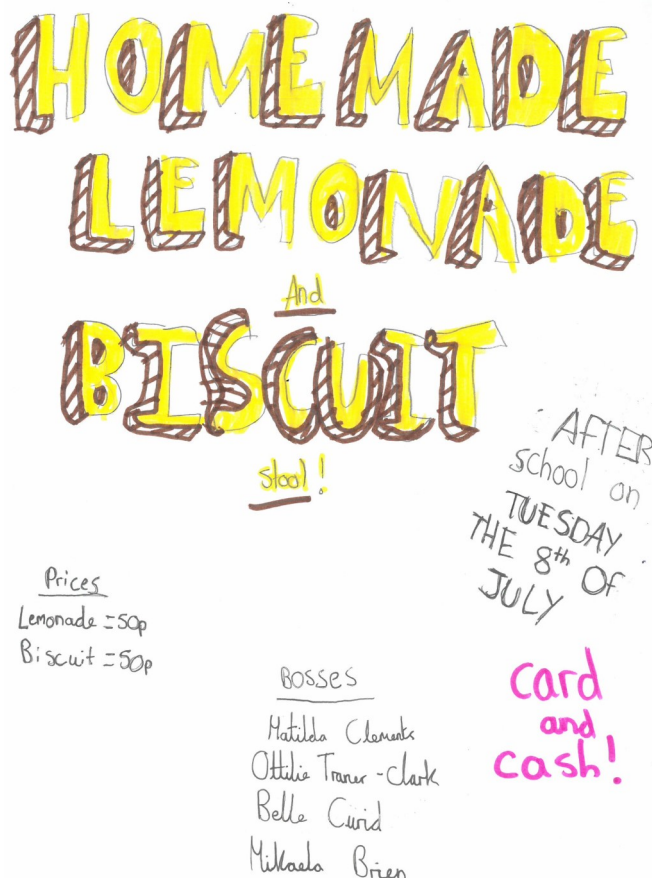 HOMEMADE
LEMONADE
And
BISCUIT
stool!
AFTER
school on
TUESDAY
THE 8th OF
JULY
Prices
Lemonade = 50p
Biscuit = 50p
BOSSES
Matilda Clements
Ottilie Traner-Clark
Belle
Mikaela Brien
card
and
cash!